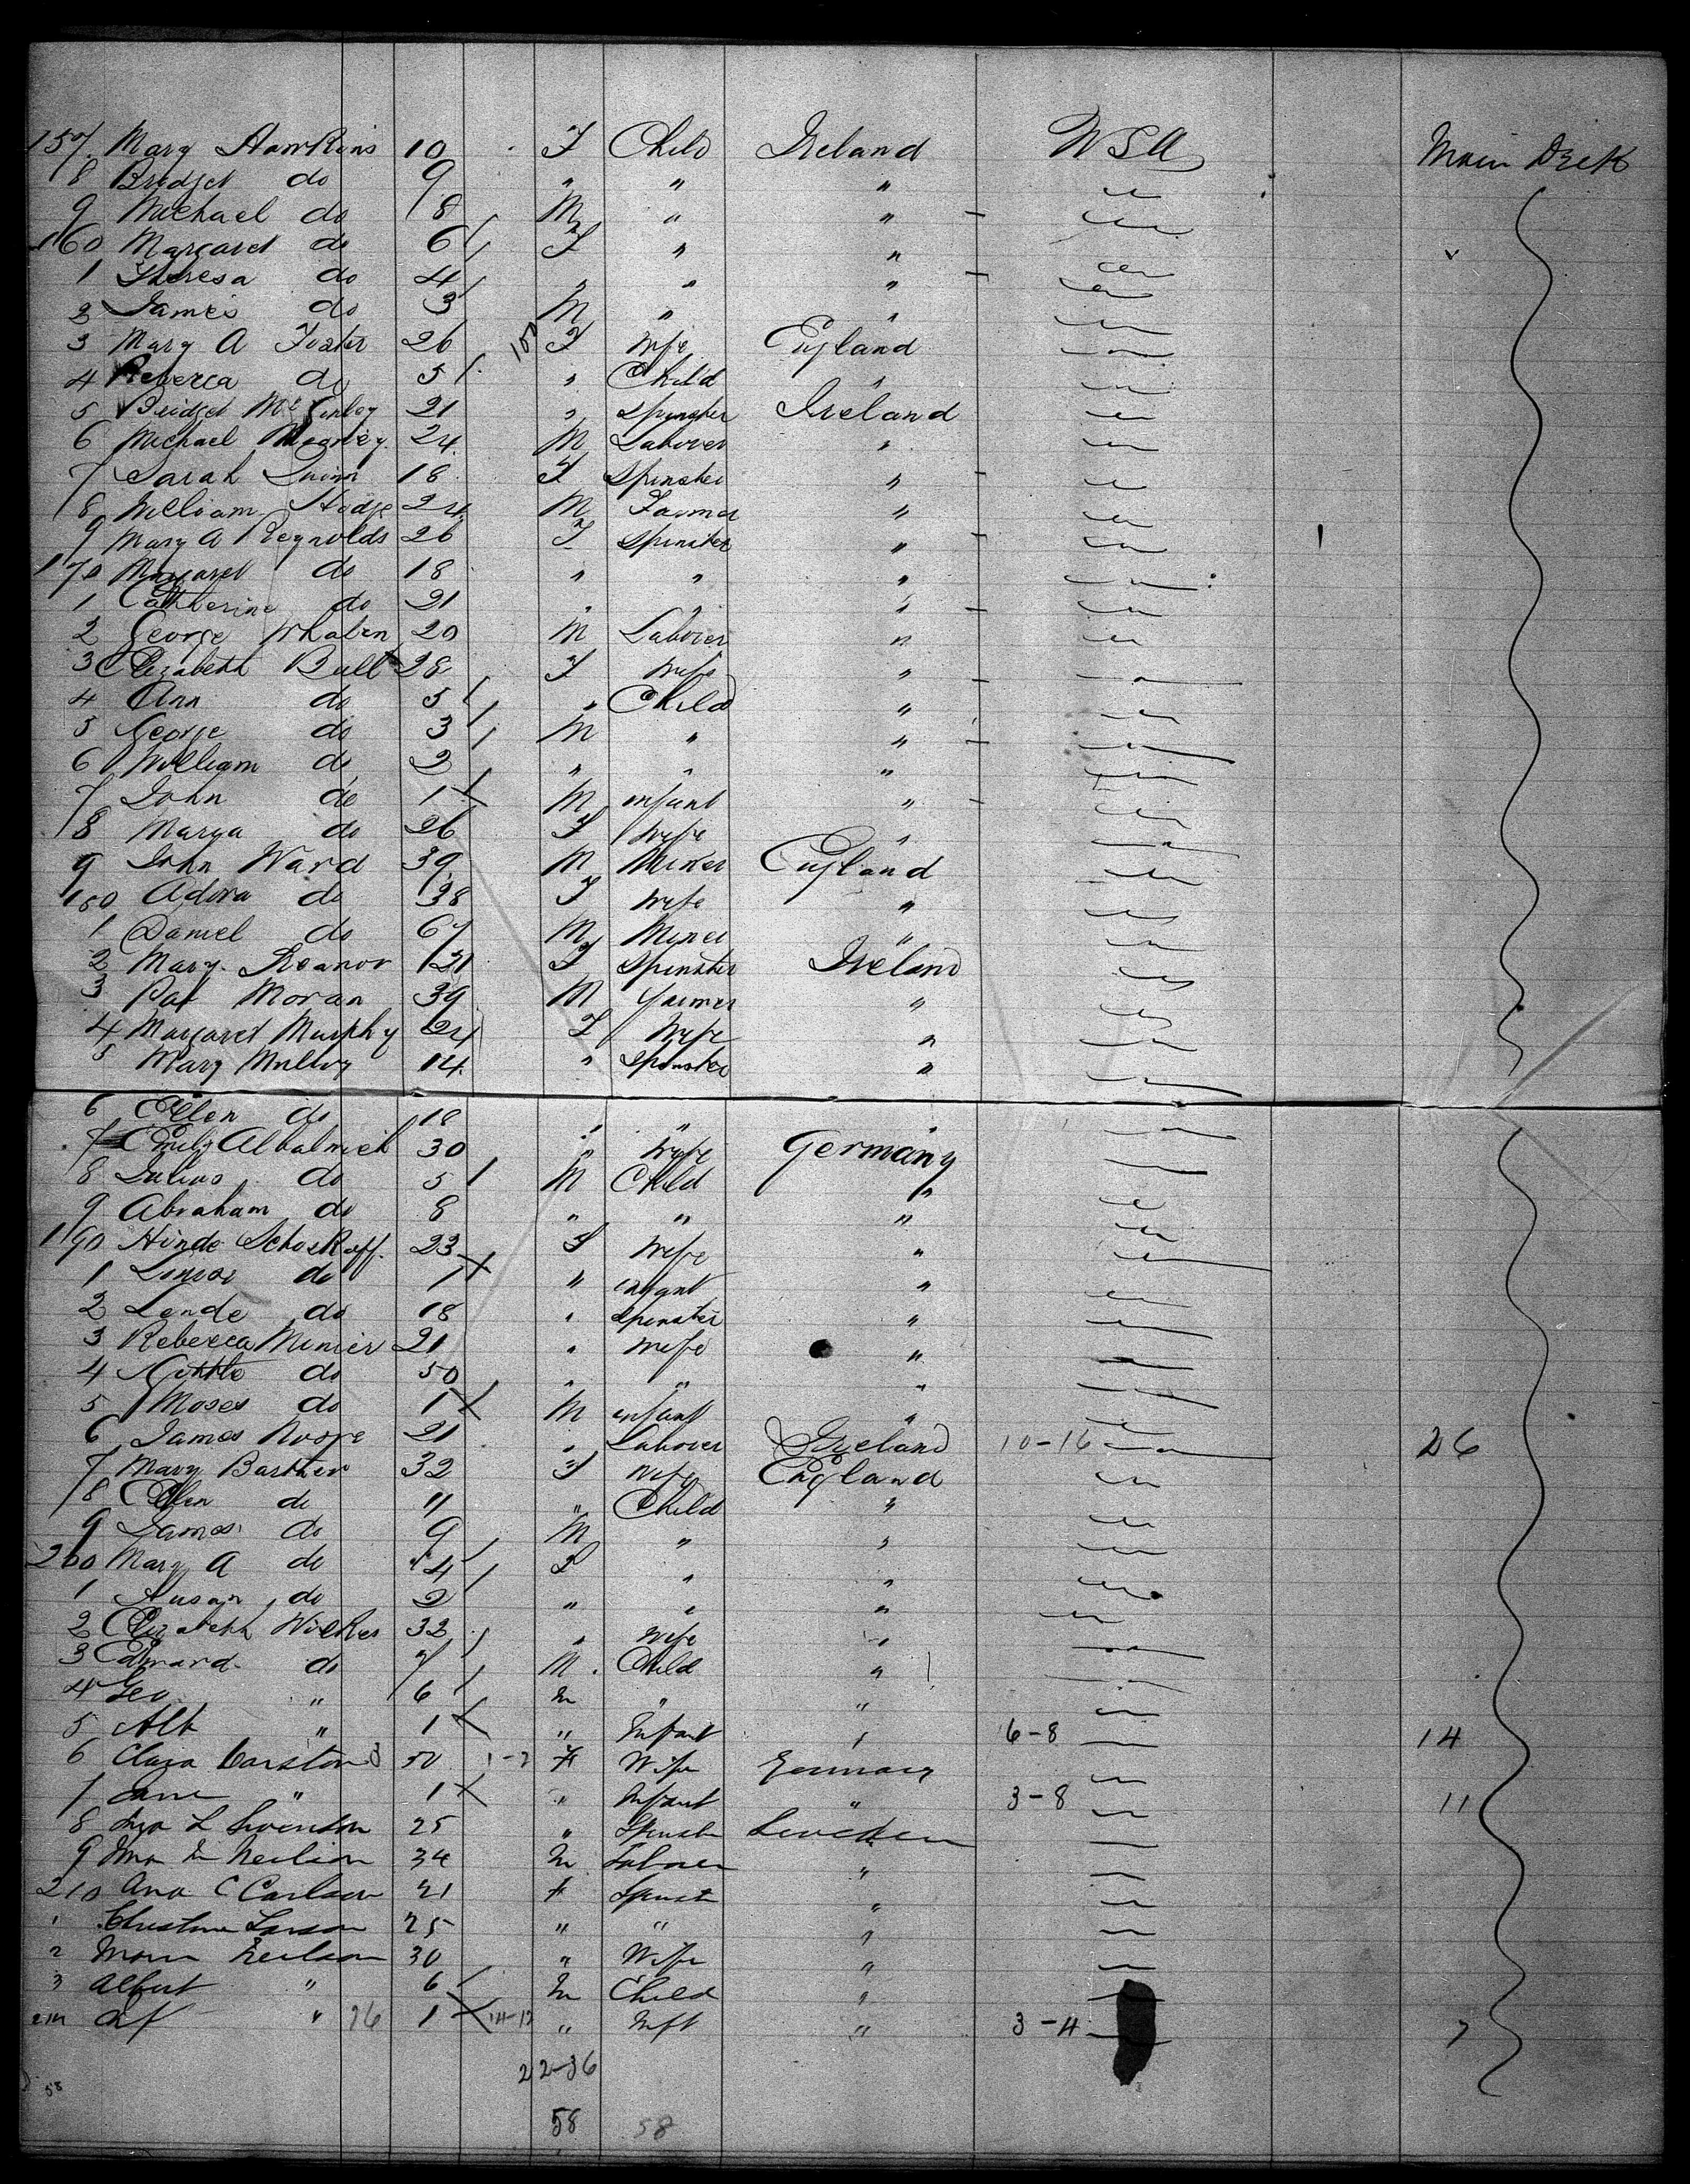 157 Mary Hawkins 10 F Child Ireland USA Main Deck
8 Bridget do 9 " " "
9 Michael do 8 M " "
160 Margaret do 6 F " "
1 Theresa do 4 " " "
2 James do 3 M " "
3 Mary A Foster 26 F Wife England
4 Rebecca do 5 " Child "
5 Bridget McGinley 21 " Spinster Ireland
6 Michael 24 M Laborer "
7 Sarah Quinn 18 F Spinster "
8 William Hodge 24 M Farmer "
9 Mary A Reynolds 26 F Spinster " 1
170 Margaret do 18 " " "
1 Catherine do 21 " " "
2 George Whalen 20 M Laborer "
3 Elizabeth Bull 28 F Wife "
4 Ann do 5 " Child "
5 George do 3 M " "
6 William do 2 " " "
7 John do 1 M infant "
8 Marya do 26 F Wife "
9 John Ward 39 M Miner England
180 Adora do 38 F Wife "
1 Daniel do 67 M Miner "
2 Mary 21 F Spinster Ireland
3 Pat Moran 39 M Farmer "
4 Margaret Murphy 24 F Wife "
5 Mary 14 " Spinster "
6 Ellen do 18 " " "
7 Emily 30 " Wife Germany
8 Julius do 5 M Child "
9 Abraham do 8 " " "
190 Hinde 23 F Wife "
1 do 1 " infant "
2 Lende do 18 " Spinster "
3 Rebecca 21 " Wife "
4 do 50 " " "
5 Moses do 1 M infant "
6 James 21 " Laborer Ireland 10-16 26
7 Mary 32 F Wife England
8 Ellen do 11 " Child "
9 James do 9 M " "
200 Mary A do 4 F " "
1 Susan do 2 " " "
2 Elizabeth Wilkes 32 " Wife "
3 Edward do 7 M Child "
4 Geo " 6 M " "
5 Alb " 1 " Infant " 6-8 14
6 Clara 50 1-2 F Wife Germany
7 " 1 " Infant " 3-8 11
8 25 " Spinst Sweden
9 34 M "
210 Ana C Carlson 21 F Spinst "
1 Christine Larson 25 " " "
2 30 " Wife "
3 Albert " 6 M Child "
214 " 26 1 " Inft " 3-4 7
22-36
58 58 58